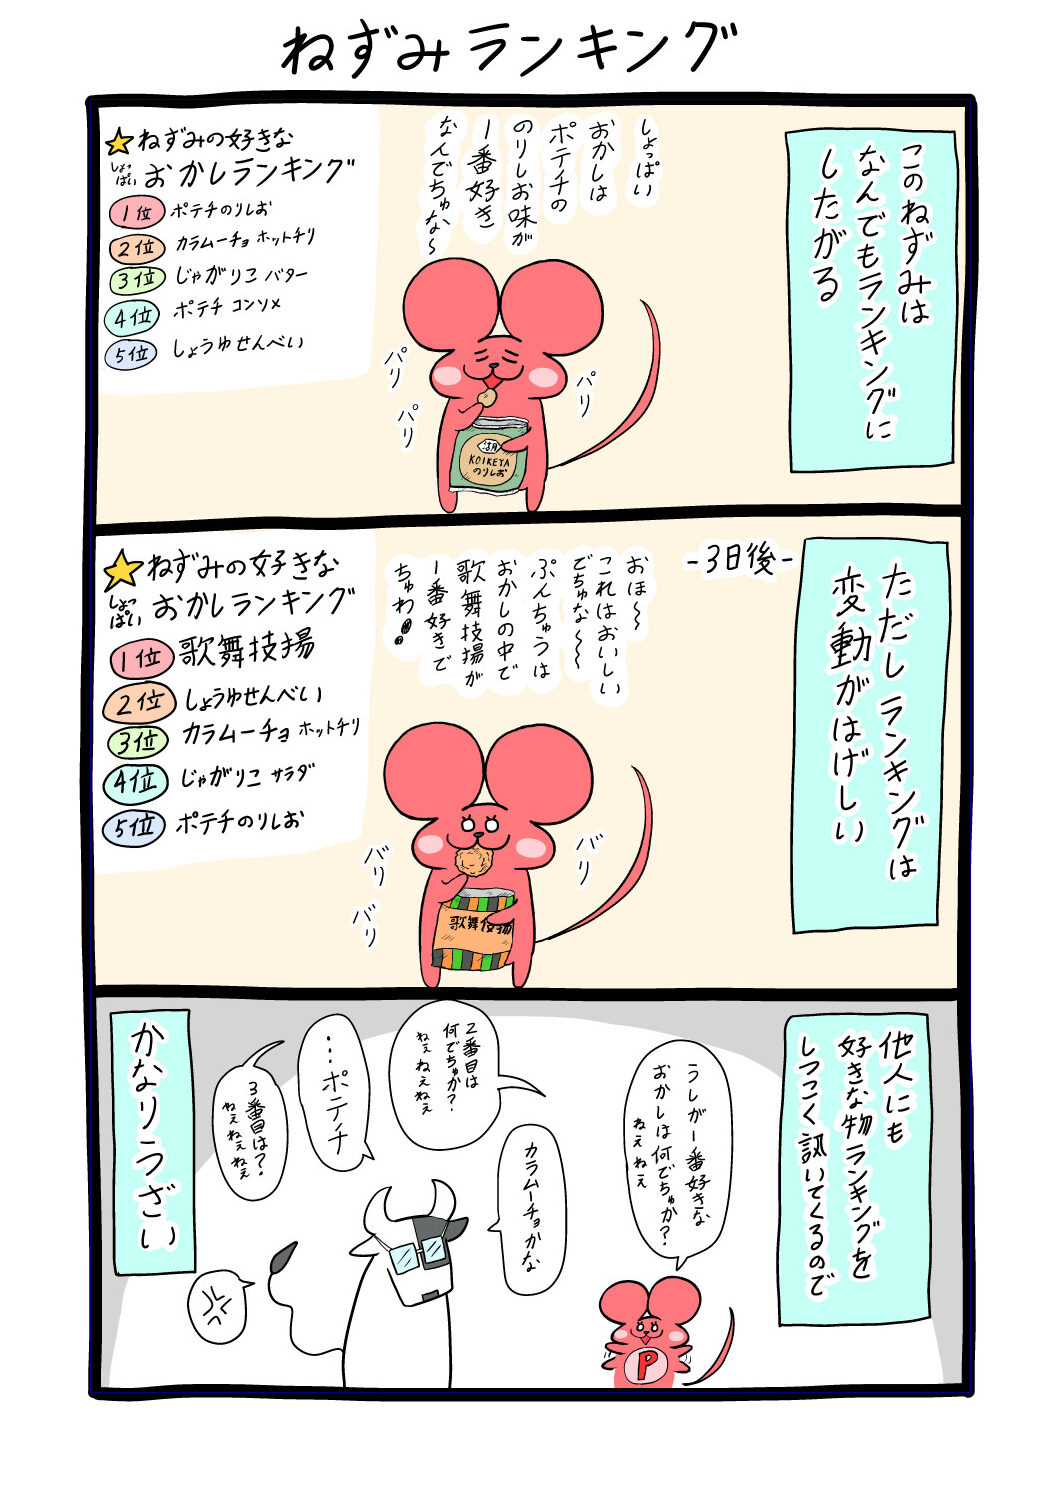 ねずみランキング
このねずみは
なんでもランキングに
したがる
しょっぱい
おかしは
ポテチの
のりしお味が
1番好き
なんでちゅな〜
★ねずみの好きな
しょっぱいおかしランキング
1位 ポテチのりしお
2位 カラムーチョ ホットチリ
3位 じゃがりこ バター
4位 ポテチ コンソメ
5位 しょうゆせんべい
パリ
パリ
パリ
湖
KOIKEYA
のりしお
ただしランキングは
変動がはげしい
-3日後-
おほ〜〜
これはおいしい
でちゅな〜〜
ぷんちゅうは
おかしの中で
歌舞伎揚が
1番好きで
ちゅわ!!
★ねずみの好きな
しょっぱいおかしランキング
1位 歌舞伎揚
2位 しょうゆせんべい
3位 カラムーチョ ホットチリ
4位 じゃがりこ サラダ
5位 ポテチのりしお
バリ
バリ
バリ
歌舞伎揚
他人にも
好きな物ランキングを
しつこく訊いてくるので
うしが1番好きな
おかしは何でちゅか?
ねぇねぇ
カラムーチョかな
2番目は
何でちゅか?
ねぇねぇねぇ
…ポテチ
3番目は?
ねぇねぇねぇ
P
かなりうざい